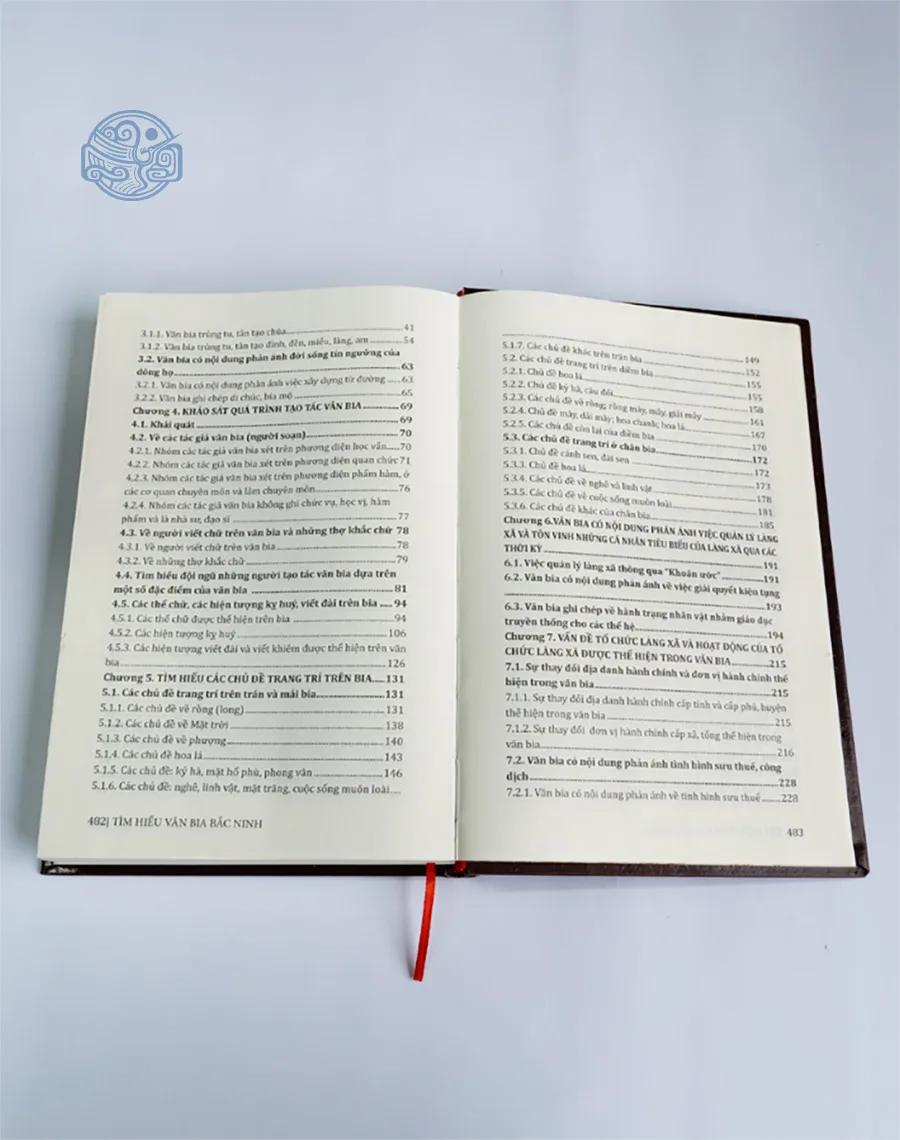 3.1.1. Văn bia trùng tu, tân tạo chùa........41
3.1.2. Văn bia trùng tu, tân tạo đình, đền, miếu, lăng, am........54
3.2. Văn bia có nội dung phản ánh đời sống tín ngưỡng của
dòng họ........63
3.2.1. Văn bia có nội dung phản ánh việc xây dựng từ đường........63
3.2.2. Văn bia ghi chép di chúc, bia mộ........65
Chương 4. KHẢO SÁT QUÁ TRÌNH TẠO TÁC VĂN BIA........69
4.1. Khái quát........69
4.2. Về các tác giả văn bia (người soạn)........70
4.2.1. Nhóm các tác giả văn bia xét trên phương diện học vấn....70
4.2.2. Nhóm các tác giả văn bia xét trên phương diện quan chức 71
4.2.3. Nhóm các tác giả văn bia xét trên phương diện phẩm hàm, ở
các cơ quan chuyên môn và làm chuyên môn........76
4.2.4. Nhóm các tác giả văn bia không ghi chức vụ, học vị, hàm
phẩm và là nhà sư, đạo sĩ........77
4.3. Về người viết chữ trên văn bia và những thợ khắc chữ 78
4.3.1. Về người viết chữ trên văn bia........78
4.3.2. Về những thợ khắc chữ........79
4.4. Tìm hiểu đội ngũ những người tạo tác văn bia dựa trên
một số đặc điểm của văn bia........81
4.5. Các thể chữ, các hiện tượng kỵ huý, viết đài trên bia.....94
4.5.1. Các thể chữ được thể hiện trên bia........94
4.5.2. Các hiện tượng kỵ huý........106
4.5.3. Các hiện tượng viết đài và viết khiêm được thể hiện trên văn
bia........126
Chương 5. TÌM HIỂU CÁC CHỦ ĐỀ TRANG TRÍ TRÊN BIA....131
5.1. Các chủ đề trang trí trên trán và mái bia........131
5.1.1. Các chủ đề về rồng (long)........131
5.1.2. Các chủ đề về Mặt trời........138
5.1.3. Các chủ đề về phượng........140
5.1.4. Các chủ đề hoa lá........143
5.1.5. Các chủ đề: kỷ hà, mặt hổ phù, phong vân........146
5.1.6. Các chủ đề: nghê, linh vật, mặt trăng, cuộc sống muôn loài....
482| TÌM HIỂU VĂN BIA BẮC NINH
........149
5.1.7. Các chủ đề khác trên trán bia........152
5.2. Các chủ đề trang trí trên diềm bia........155
5.2.1. Chủ đề hoa lá........155
5.2.2. Chủ đề kỷ hà, câu đối........158
5.2.3. Các chủ đề về rồng; rồng mây, mây, giải mây........161
5.2.4. Chủ đề mây, dải mây; hoa chanh; hoa lá........167
5.2.5. Các chủ đề còn lại của diềm bia........170
5.3. Các chủ đề trang trí ở chân bia........172
5.3.1. Chủ đề cánh sen, đài sen........172
5.3.3. Chủ đề hoa lá........173
5.3.4. Các chủ đề về nghê và linh vật........178
5.3.5. Các chủ đề về cuộc sống muôn loài........181
5.3.6. Các chủ đề khác của chân bia........185
Chương 6.VĂN BIA CÓ NỘI DUNG PHẢN ÁNH VIỆC QUẢN LÝ LÀNG
XÃ VÀ TÔN VINH NHỮNG CÁ NHÂN TIÊU BIỂU CỦA LÀNG XÃ QUA CÁC
THỜI KỲ........191
6.1. Việc quản lý làng xã thông qua "Khoán ước"........191
6.2. Văn bia có nội dung phản ánh về việc giải quyết kiện tụng
........193
6.3. Văn bia ghi chép về hành trạng nhân vật nhằm giáo dục
truyền thống cho các thế hệ........194
Chương 7. VẤN ĐỀ TỔ CHỨC LÀNG XÃ VÀ HOẠT ĐỘNG CỦA TỔ
CHỨC LÀNG XÃ ĐƯỢC THỂ HIỆN TRONG VĂN BIA........215
7.1. Sự thay đổi địa danh hành chính và đơn vị hành chính thể
hiện trong văn bia........215
7.1.1. Sự thay đổi địa danh hành chính cấp tỉnh và cấp phủ, huyện
thể hiện trong văn bia........215
7.1.2. Sự thay đổi đơn vị hành chính cấp xã, tổng thể hiện trong
văn bia........216
7.2. Văn bia có nội dung phản ánh tình hình sưu thuế, công
dịch........228
7.2.1. Văn bia có nội dung phản ánh về tình hình sưu thuế.......228
483